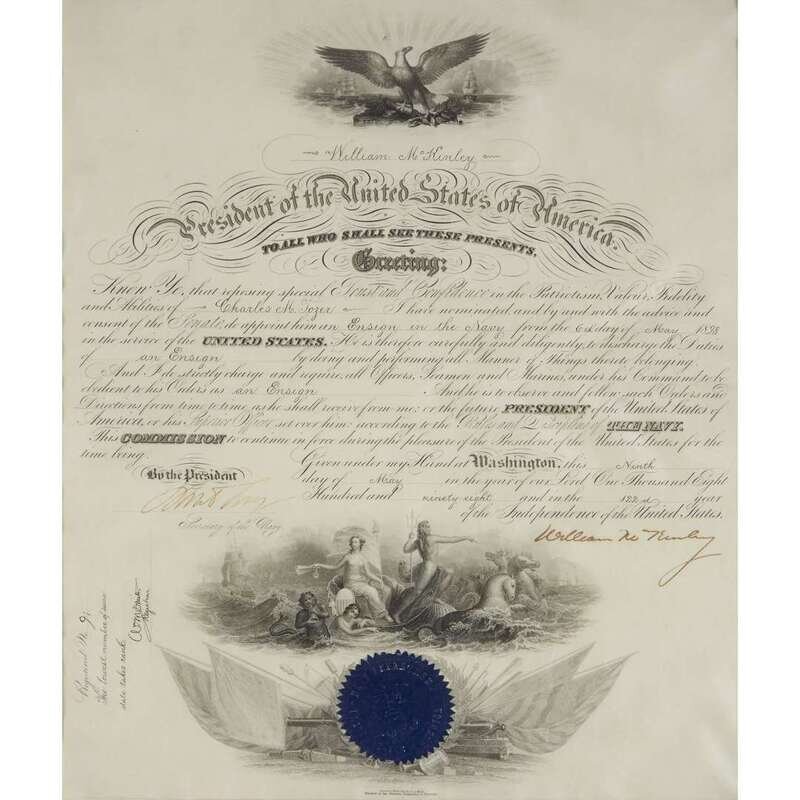 William McKinley
President of the United States of America.
TO ALL WHO SHALL SEE THESE PRESENTS,
Greeting:
Know Ye, that reposing special Trust and Confidence in the Patriotism, Valour, Fidelity
and Abilities of Charles M. Tozer I have nominated and by and with the advice and
consent of the Senate do appoint him an Ensign in the Navy from the 6th day of May 1898
in the service of the UNITED STATES. He is therefore carefully and diligently to discharge the Duties
of an Ensign by doing and performing all Manner of Things thereto belonging.
And I do strictly charge and require all Officers, Seamen and Marines under his Command to be
obedient to his Orders as an Ensign And he is to observe and follow such Orders and
Directions from time to time as he shall receive from me or the future PRESIDENT of the United States of
America, or his Superior Officer set over him according to the Rules and Discipline of THE NAVY.
This COMMISSION to continue in force during the pleasure of the President of the United States for the
time being.
Given under my Hand at Washington, this Ninth
By the President
day of May in the year of our Lord One Thousand Eight
Hundred and ninety eight and in the 122d year
Secretary of the Navy
of the Independence of the United States.
William McKinley
Registered No. 91
The lowest number of same
date takes rank
Register